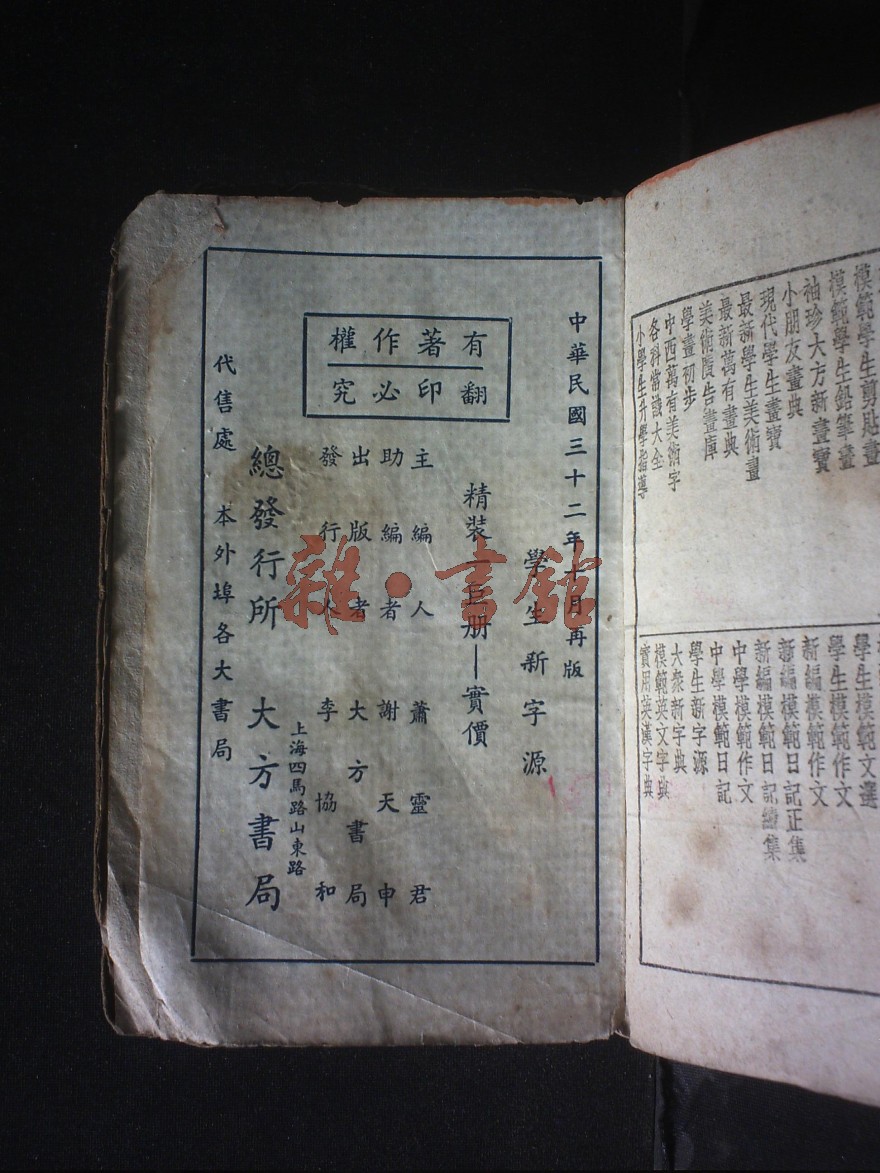 中華民國三十二年一月再版
學生新字源
精裝一巨册—實價
有著作權
翻印必究
主編人 蕭靈君
助編者 謝天申
出版者 大方書局
發行人 李協和
上海四馬路山東路
總發行所 大方書局
代售處 本外埠各大書局
雜·書館
模範學生剪貼畫
模範學生鉛筆畫
袖珍大方新畫寶
小朋友畫典
現代學生畫寶
最新學生美術畫
最新萬有畫典
美術廣告畫庫
學畫初步
中西萬有美術字
各科常識大全
小學生升學指導
學生模範文選
學生模範作文
新編模範作文
新編模範日記正集
新編模範日記續集
中學模範作文
中學模範日記
學生新字源
大衆新字典
模範英文字典
實用英漢字典